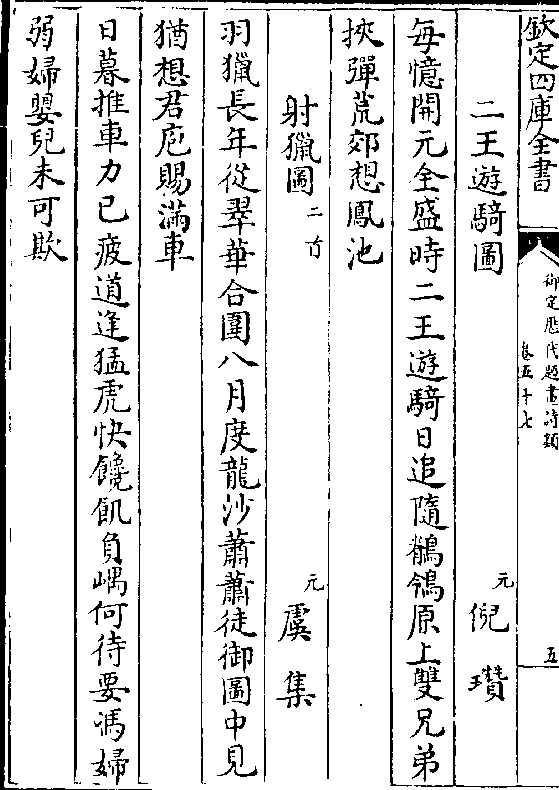 欽定四庫全書
御定歷代題畫詩類
卷五十七
五
二王遊騎圖
元
倪瓚
每憶開元全盛時二王遊騎日追隨鶺鴒原上雙兄弟
挾彈荒郊想鳳池
射獵圖
二首
元
虞集
羽獵長年從翠華合圍八月度龍沙蕭蕭徒御圖中見
猶想君庖賜滿車
日暮推車力已疲道逢猛虎快饞飢負嵎何待要馮婦
弱婦嬰兒未可欺